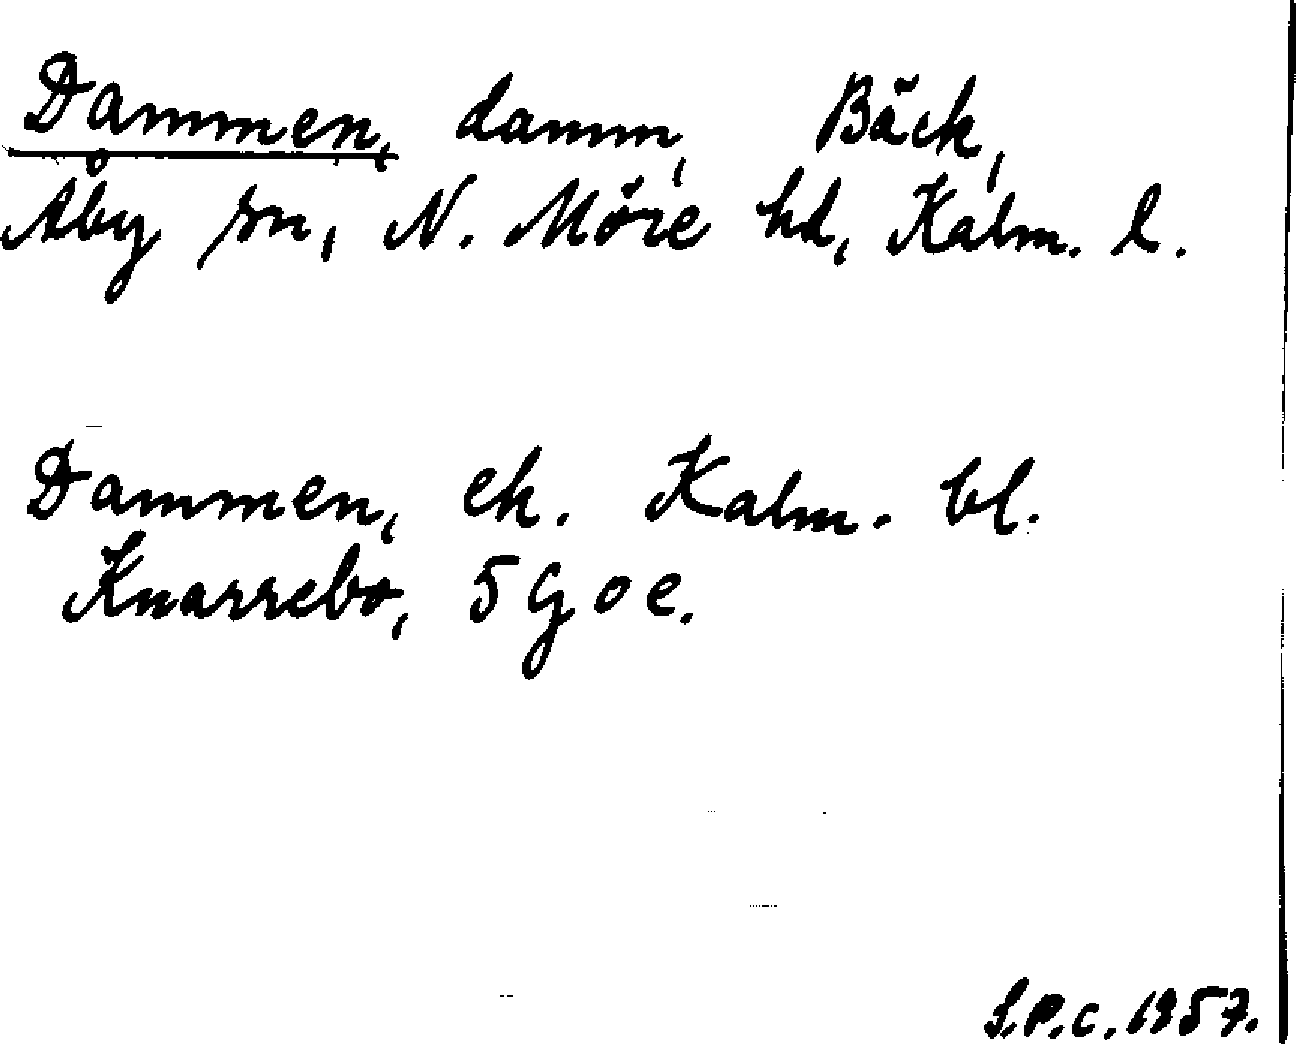 Dammen, damm, Bäck,
Åby sn, N. Möre hd, Kalm. l.
Dammen, ek. Kalm. bl.
Knarrebo, 5 G o e.
S.P.C. 1957.